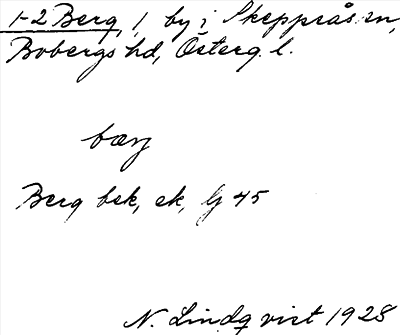 1-2 Berg, 1, by i Skeppsås sn,
Bobergs hd, Österg. l.
bærj
Berg bek, ek, Gj 45
N. Lindqvist 1928